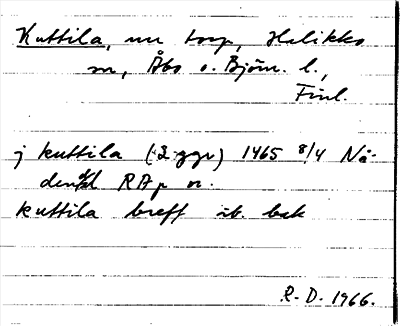 Kuttila, nu torp, Halikko
sn, Åbo o. Björn. l.,
Finl.
j kuttila (2 ggr) 1465 8/4 Nå-
dendal RA p or.
kuttila breff ib. bak
R. D. 1966.